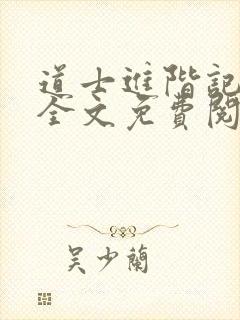 道士進階記
全文免費閱
吳少蘭